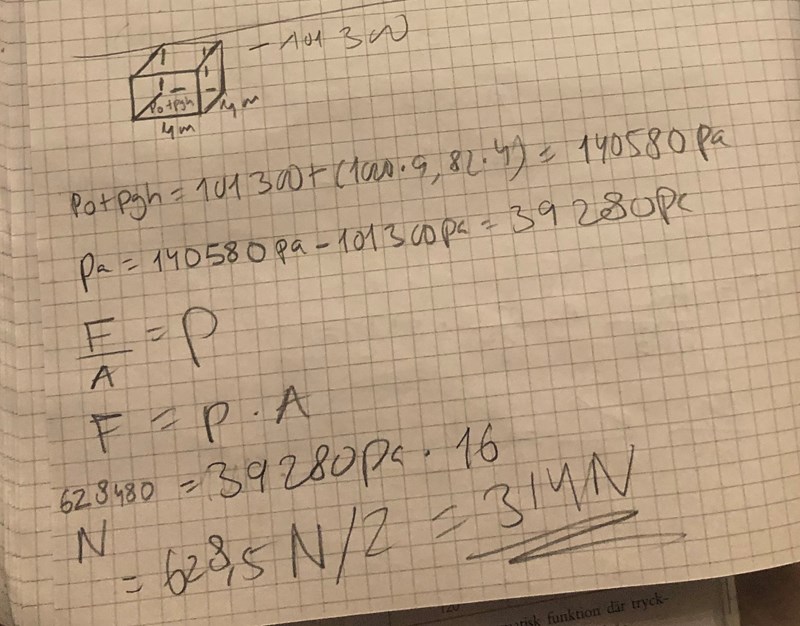 - 101 300
p0+ρgh
4m
4m
p0+ρgh = 101 300 + (1000 · 9,82 · 4) = 140580 pa
pa = 140580 pa - 101300 pa = 39 280 pa
F/A = p
F = p · A
628480 N = 39280 pa · 16
= 628,5 N/2 = 314N
120
funktion där tryck-